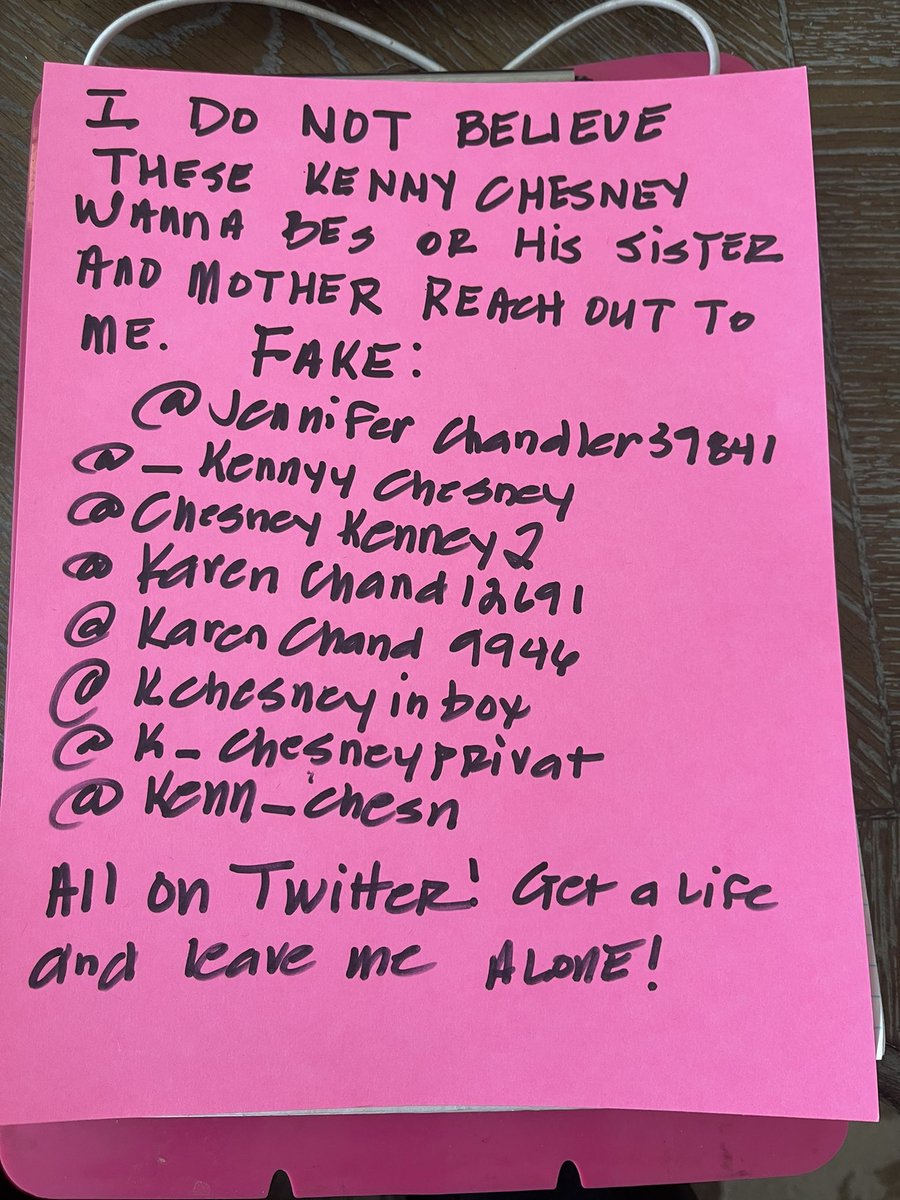 I DO NOT BELIEVE
THESE KENNY CHESNEY
WANNA BES OR HIS SISTER
AND MOTHER REACH OUT TO
ME. FAKE:
@Jennifer Chandler39841
@_Kennyy Chesney
@Chesney Kenney2
@Karen Chand12691
@Karen Chand 9946
@Kchesney inbox
@K_chesneyprivat
@Kenn_chesn
All on Twitter! Get a Life
and leave me ALONE!